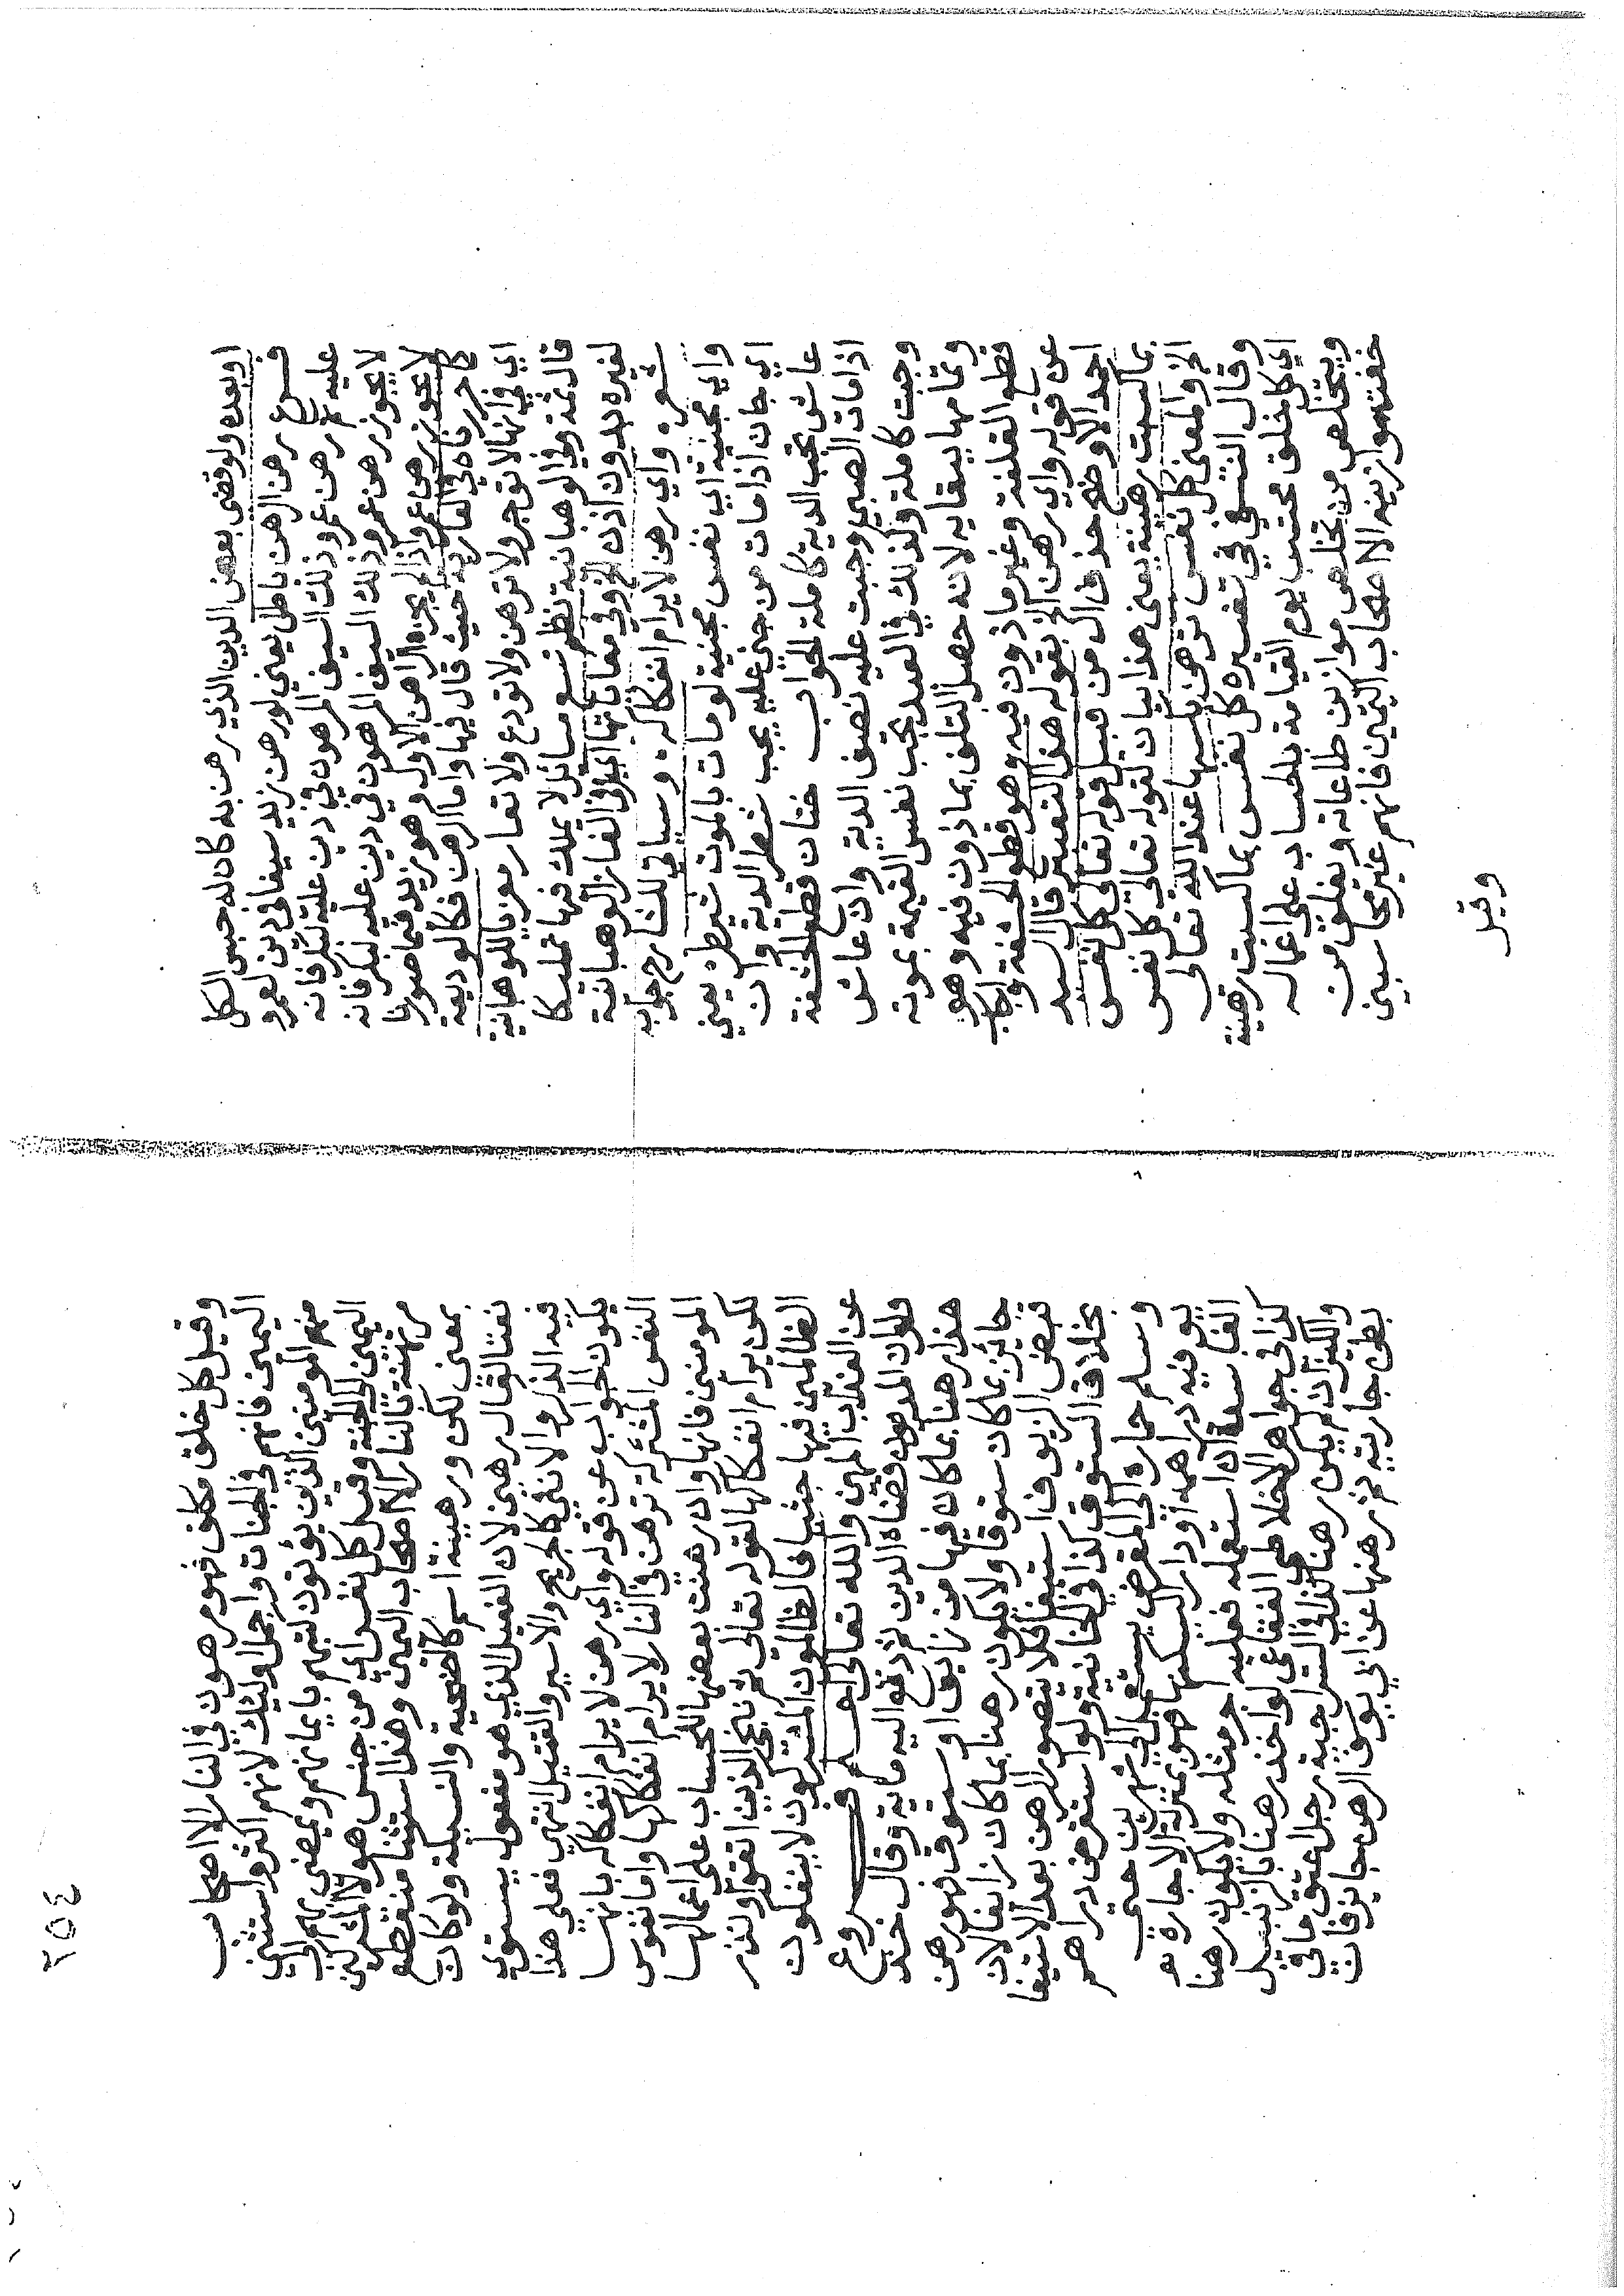 اوبعده ولو قضى بعض الدين الذي رهن به كان له حبس الكل
فـــرع رهن الرهن باطل يعني لو رهن زيد سيفا في دين لعمرو
عليه ثم رهن عمرو ذلك السيف المرهون في دين عليه لبكر فانه
لا يجوز رهن عمرو ذلك السيف المرهون في دين عليه لبكر فانه
لا يجوز رهن عمرو اذا لم يجزه الراهن الاول وهو زيد فيما صورنا
كما حررناه في العارية حيث قال فيها واما الرهن فكالوديعة
اي في انها لا تؤجر ولا ترهن ولا تودع ولا تعار معزيا للوهبانية
قال ثمة وفي الوهبانية نظم تسع مسائل لا يملك فيها تمليكا
لغيره بدون اذن الخ وفي معاياتها اي في الغاز الوهبانية
شعر واي رهن لا يرام انفكاكه وسياتي للشارح جوابه
واي مجنية اي نفس مجنية لو مات بالموت شيطره يعني
اي جان اذا مات من جنى عليه يجب شطر الدية وان
عاش تجب الدية كاملة الجواب ختان قطع الحشفة
اذا مات الصبي وجبت عليه نصف الدية وان عاش
وجبت كاملة ولذلك في العبد تجب نفس القيمة بموته
وتمامها ببقايه لانه حصل التلف بماذون فيه وهو
قطع القلفة وغير ماذون فيه وهو قطع الحشفة واجاب
عن قوله واي رهن الخ بقوله هذا التفسير قال السيد
احمد الاوضح حذف ال من قبل قوله تعالى كل نفس
بما كسبت رهينة يعني هذا بيان لقوله تعالى كل نفس
الخ والمعنى كل نفس ترهن بكسبها عند الله تعالى
وقال النسفي في تفسيره كل نفس بما كسبت رهينة
اي كل مخلق محتسب يوم القيامة بالحساب على اعماله
ويتخلص من تخلص موازين طاعاته ويغلق من
خفت موازينه الا اصحاب اليمين فانهم غير محاسبين
وقيل
٢٥٤
وقيل كل خلق مكلف فهو مرهون في النار الا اصحاب
اليمين فانهم في الجنات واجمل اوليك لانهم اكثر واستثني
منهم المومنين الذين يؤتون كتبهم بايمانهم ويمضي بهم الى
اليمين الى الجنة وقيل كل نفس اي من جنس هولا المشركين
مرتهنة بالنار الا اصحاب اليمين وهذا استثنا منقطع
بمعنى لكن ورهينة اسم كالضحية والنسيكة ولو كان
نعتا لقال رهين لان الفعيل الذي هو مفعول يستوي
فيه الذكر والانثى كالجريح والاسير والقتيل انتهى فعلى هذا
يكون الجواب عن قوله واي رهن لا يرام انفكاكه بانها
النفس المشركة ترهن في النار لا يرام انفكاكها واما نفوس
المومنين فانها وان رهنت بعضها للحساب على اعمالها
لكن يرام انفكاكها لقوله تعالى ثم ننجي الذين اتقوا ونذر
الظالمين فيها جثيا فالظالمون المشركون لا ينفكون
عن العذاب المهين والله تعالى اعلم فـــروع
ولو ان المديون قضاه الدين ثم دفع اليه ماية وقال خذ
هذا رهنا بما كان فيها من زايف او ستوق فهو رهن
جائز بما كان ستوقا ولا يكون رهنا بما كان زايفا لان
قبض الزيوف استيفا فلا يتصور الرهن بعد الاستيفا
بخلاف الستوق كذا في الخانية ولو استقرض دراهم
وسلم حماره الى المقرض يستعمله الى شهرين حتى
يوفيه دراهمه او داره ليسكنها فهو بمنزلة الاجارة
الفاسدة ان استعمله فعليه اجر مثله ولا يكون رهنا
كذا في جواهر الاخلاطي الفقاعي لو اخذ رهنا بالزنبيل
والكيزان لم يكن رهنا كذا في السراجية رجل عتق ما في
بطن جاريته ثم رهنها عن ابي يوسف الرهن جايز فان